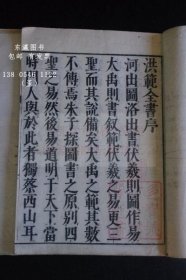 洪範全書序
河出圖洛出書伏羲則圖作易
大禹則書敘範伏羲之易更三
聖而其說備矣大禹之範其數
不傳焉朱子探圖書之原別四
聖之易然後易道明于天下當
時
人與於此者獨蔡西山耳
东
包邮
138 0546 1112